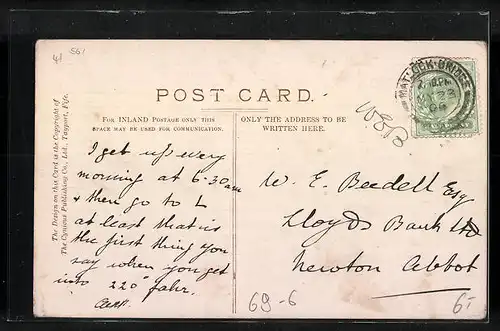 41 561
POST CARD.
For INLAND Postage only this
space may be used for communication.
ONLY THE ADDRESS TO BE
WRITTEN HERE.
The Design on this Card is the Copyright of
The Cynicus Publishing Co., Ltd., Tayport, Fife.
MATLOCK-BRIDGE
I get up every
morning at 6-30am
+ then go to L
at least that is
the first thing you
say when you get
into 220° fahr.
W. E. Beedell Esq
Lloyds Bank Ltd
Newton Abbot
69-6
6/-